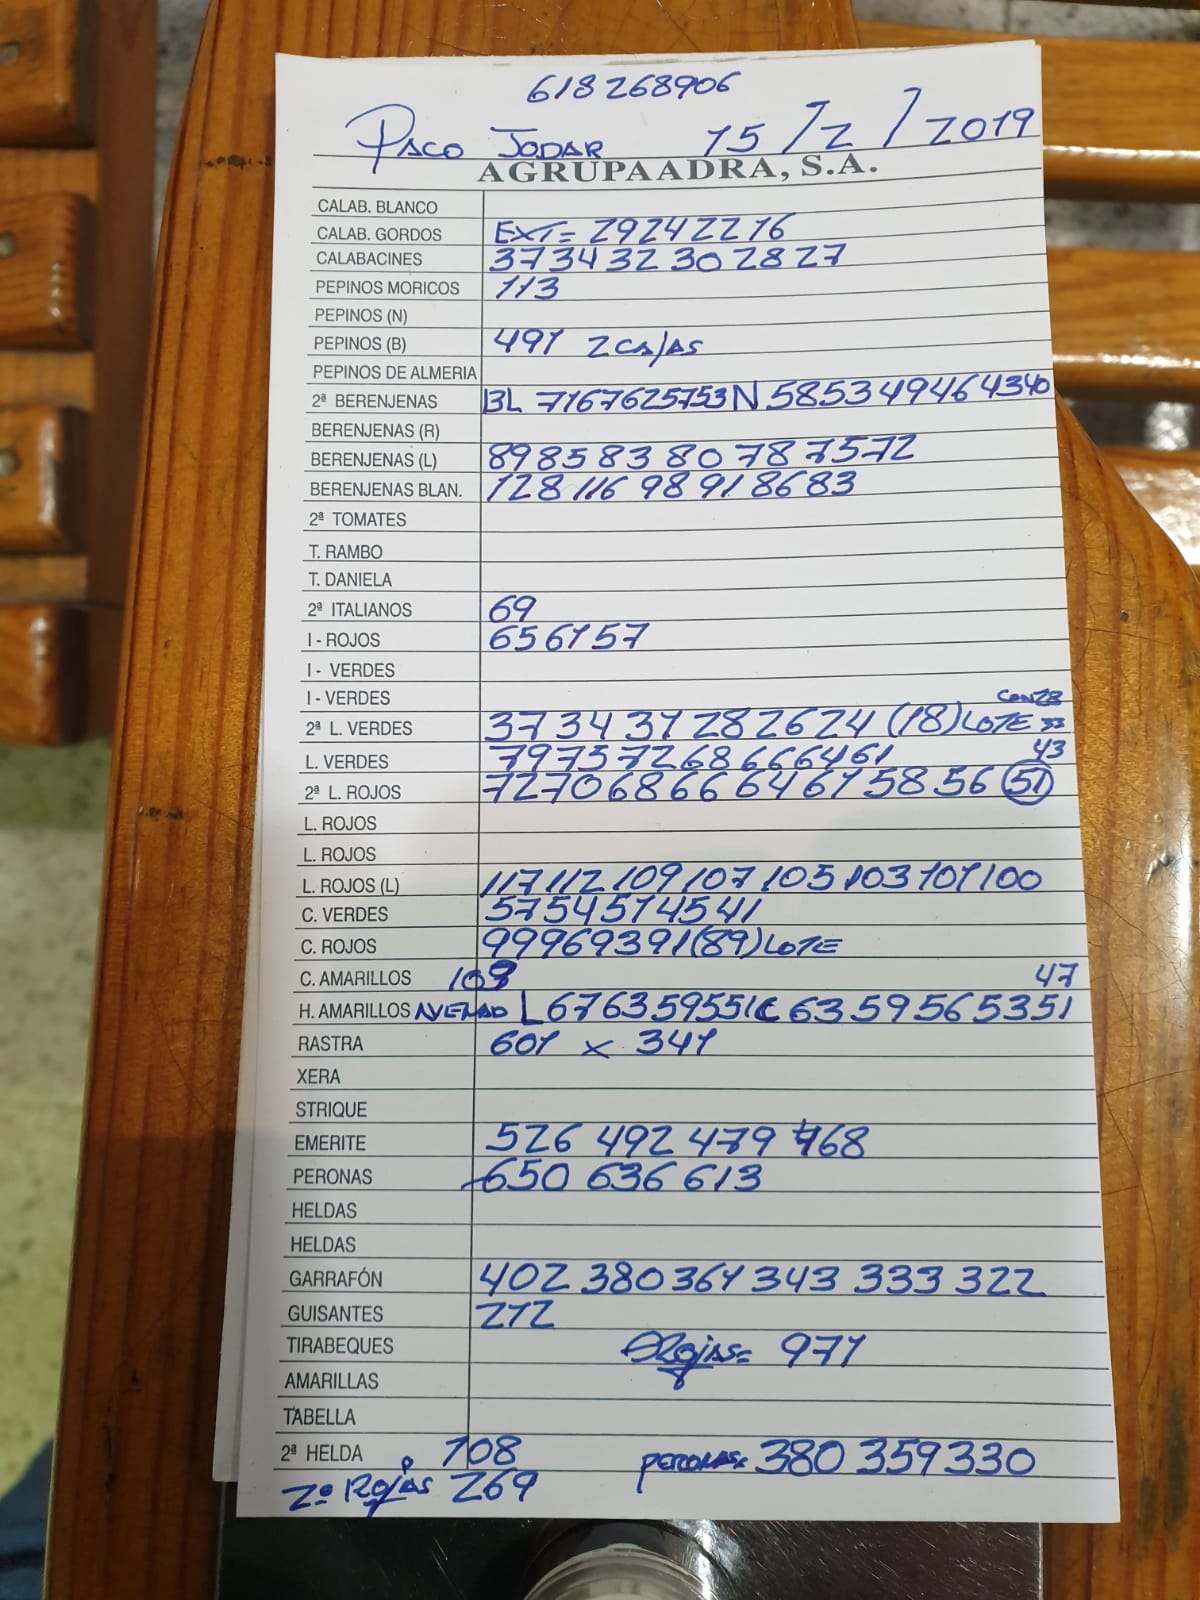 618268906
PACO JODAR 15/2/2019
AGRUPAADRA, S.A.
CALAB. BLANCO
CALAB. GORDOS EXT= 29 24 22 16
CALABACINES 37 34 32 30 28 27
PEPINOS MORICOS 113
PEPINOS (N)
PEPINOS (B) 491 2 CAJAS
PEPINOS DE ALMERIA
2ª BERENJENAS BL 71 67 62 57 53 N 58 53 49 46 43 40
BERENJENAS (R)
BERENJENAS (L) 89 85 83 80 78 75 72
BERENJENAS BLAN. 128 116 98 91 86 83
2ª TOMATES
T. RAMBO
T. DANIELA
2ª ITALIANOS 69
I - ROJOS 65 61 57
I - VERDES
I - VERDES CON 28
2ª L. VERDES 37 34 31 28 26 24 (18) LOTE 33
L. VERDES 79 75 72 68 66 64 61 43
2ª L. ROJOS 72 70 68 66 64 61 58 56 51
L. ROJOS
L. ROJOS
L. ROJOS (L) 117 112 109 107 105 103 101 100
C. VERDES 57 54 51 45 41
C. ROJOS 99 96 93 91 (89) LOTE
C. AMARILLOS 47
H. AMARILLOS L 67 63 59 55 51 C 63 59 56 53 51
RASTRA 601 x 341
XERA
STRIQUE
EMERITE 526 492 479 468
PERONAS 650 636 613
HELDAS
HELDAS
GARRAFÓN 402 380 361 343 333 322
GUISANTES 212
TIRABEQUES ROJAS= 971
AMARILLAS
TABELLA
2ª HELDA 108 PERONAS= 380 359 330
2ª ROJAS 269